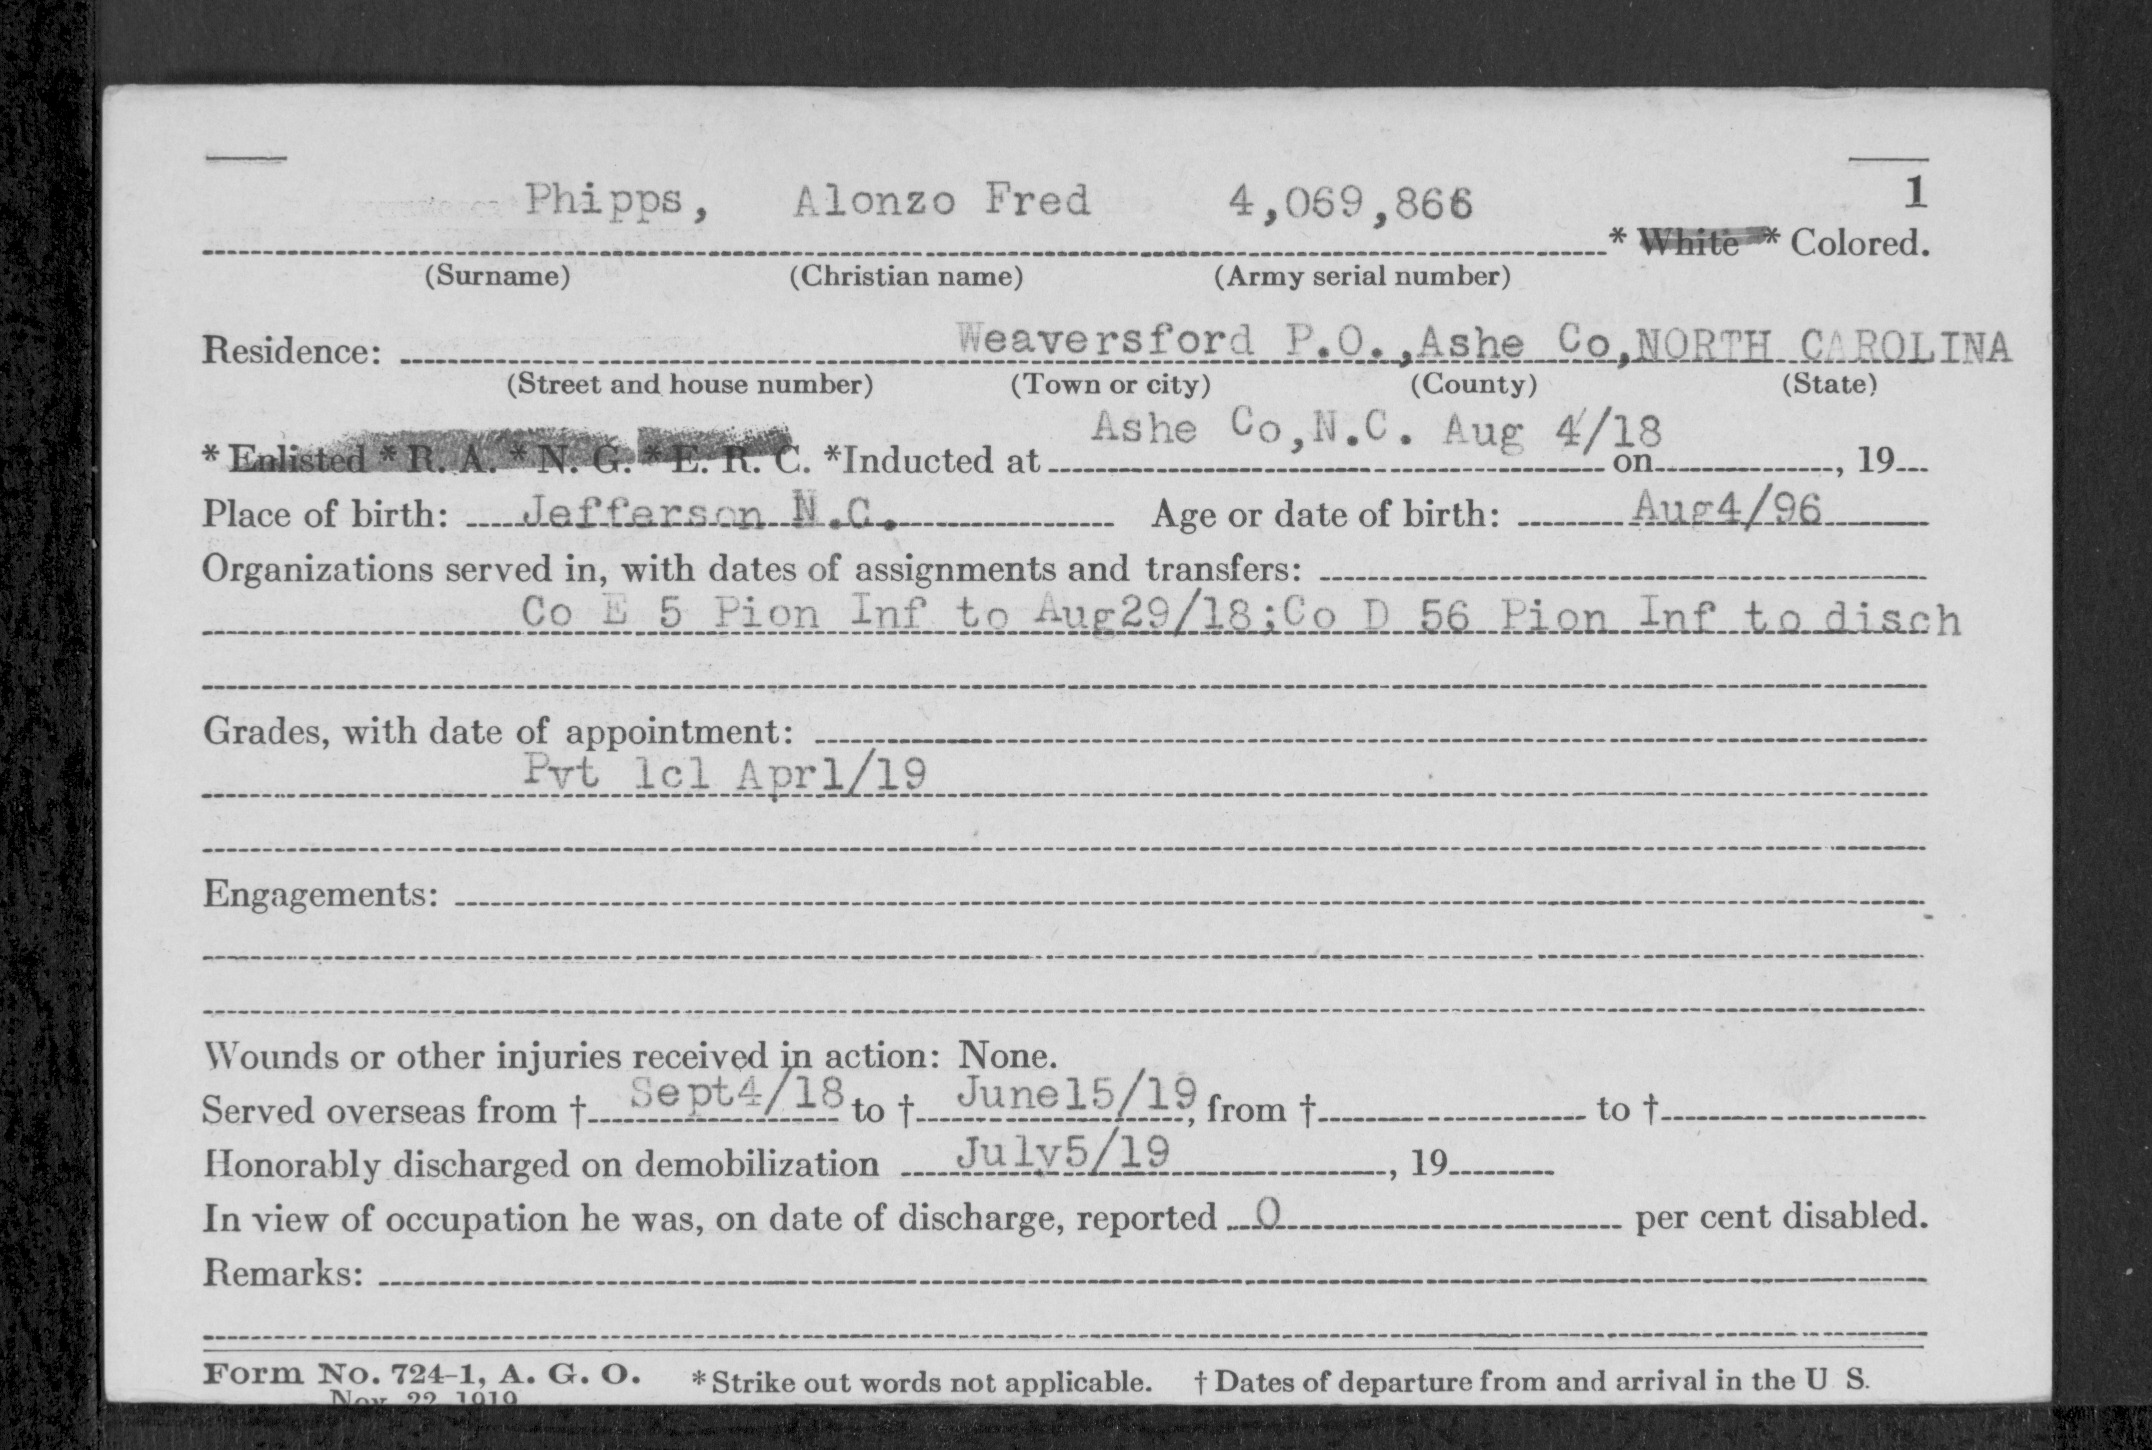 1
Phipps, Alonzo Fred 4,069,866
* White * Colored.
(Surname) (Christian name) (Army serial number)
Residence: Weaversford P.O., Ashe Co, NORTH CAROLINA
(Street and house number) (Town or city) (County) (State)
Ashe Co, N.C. Aug 4/18
* Enlisted * R. A. * N. G. * E. R. C. *Inducted at on , 19
Place of birth: Jefferson N.C. Age or date of birth: Aug4/96
Organizations served in, with dates of assignments and transfers:
Co E 5 Pion Inf to Aug29/18;Co D 56 Pion Inf to disch
Grades, with date of appointment:
Pvt 1cl Apr1/19
Engagements:
Wounds or other injuries received in action: None.
Served overseas from † Sept4/18 to † June15/19, from † to †
Honorably discharged on demobilization July5/19 , 19
In view of occupation he was, on date of discharge, reported 0 per cent disabled.
Remarks:
Form No. 724-1, A. G. O. *Strike out words not applicable. † Dates of departure from and arrival in the U S.
Nov. 22, 1919